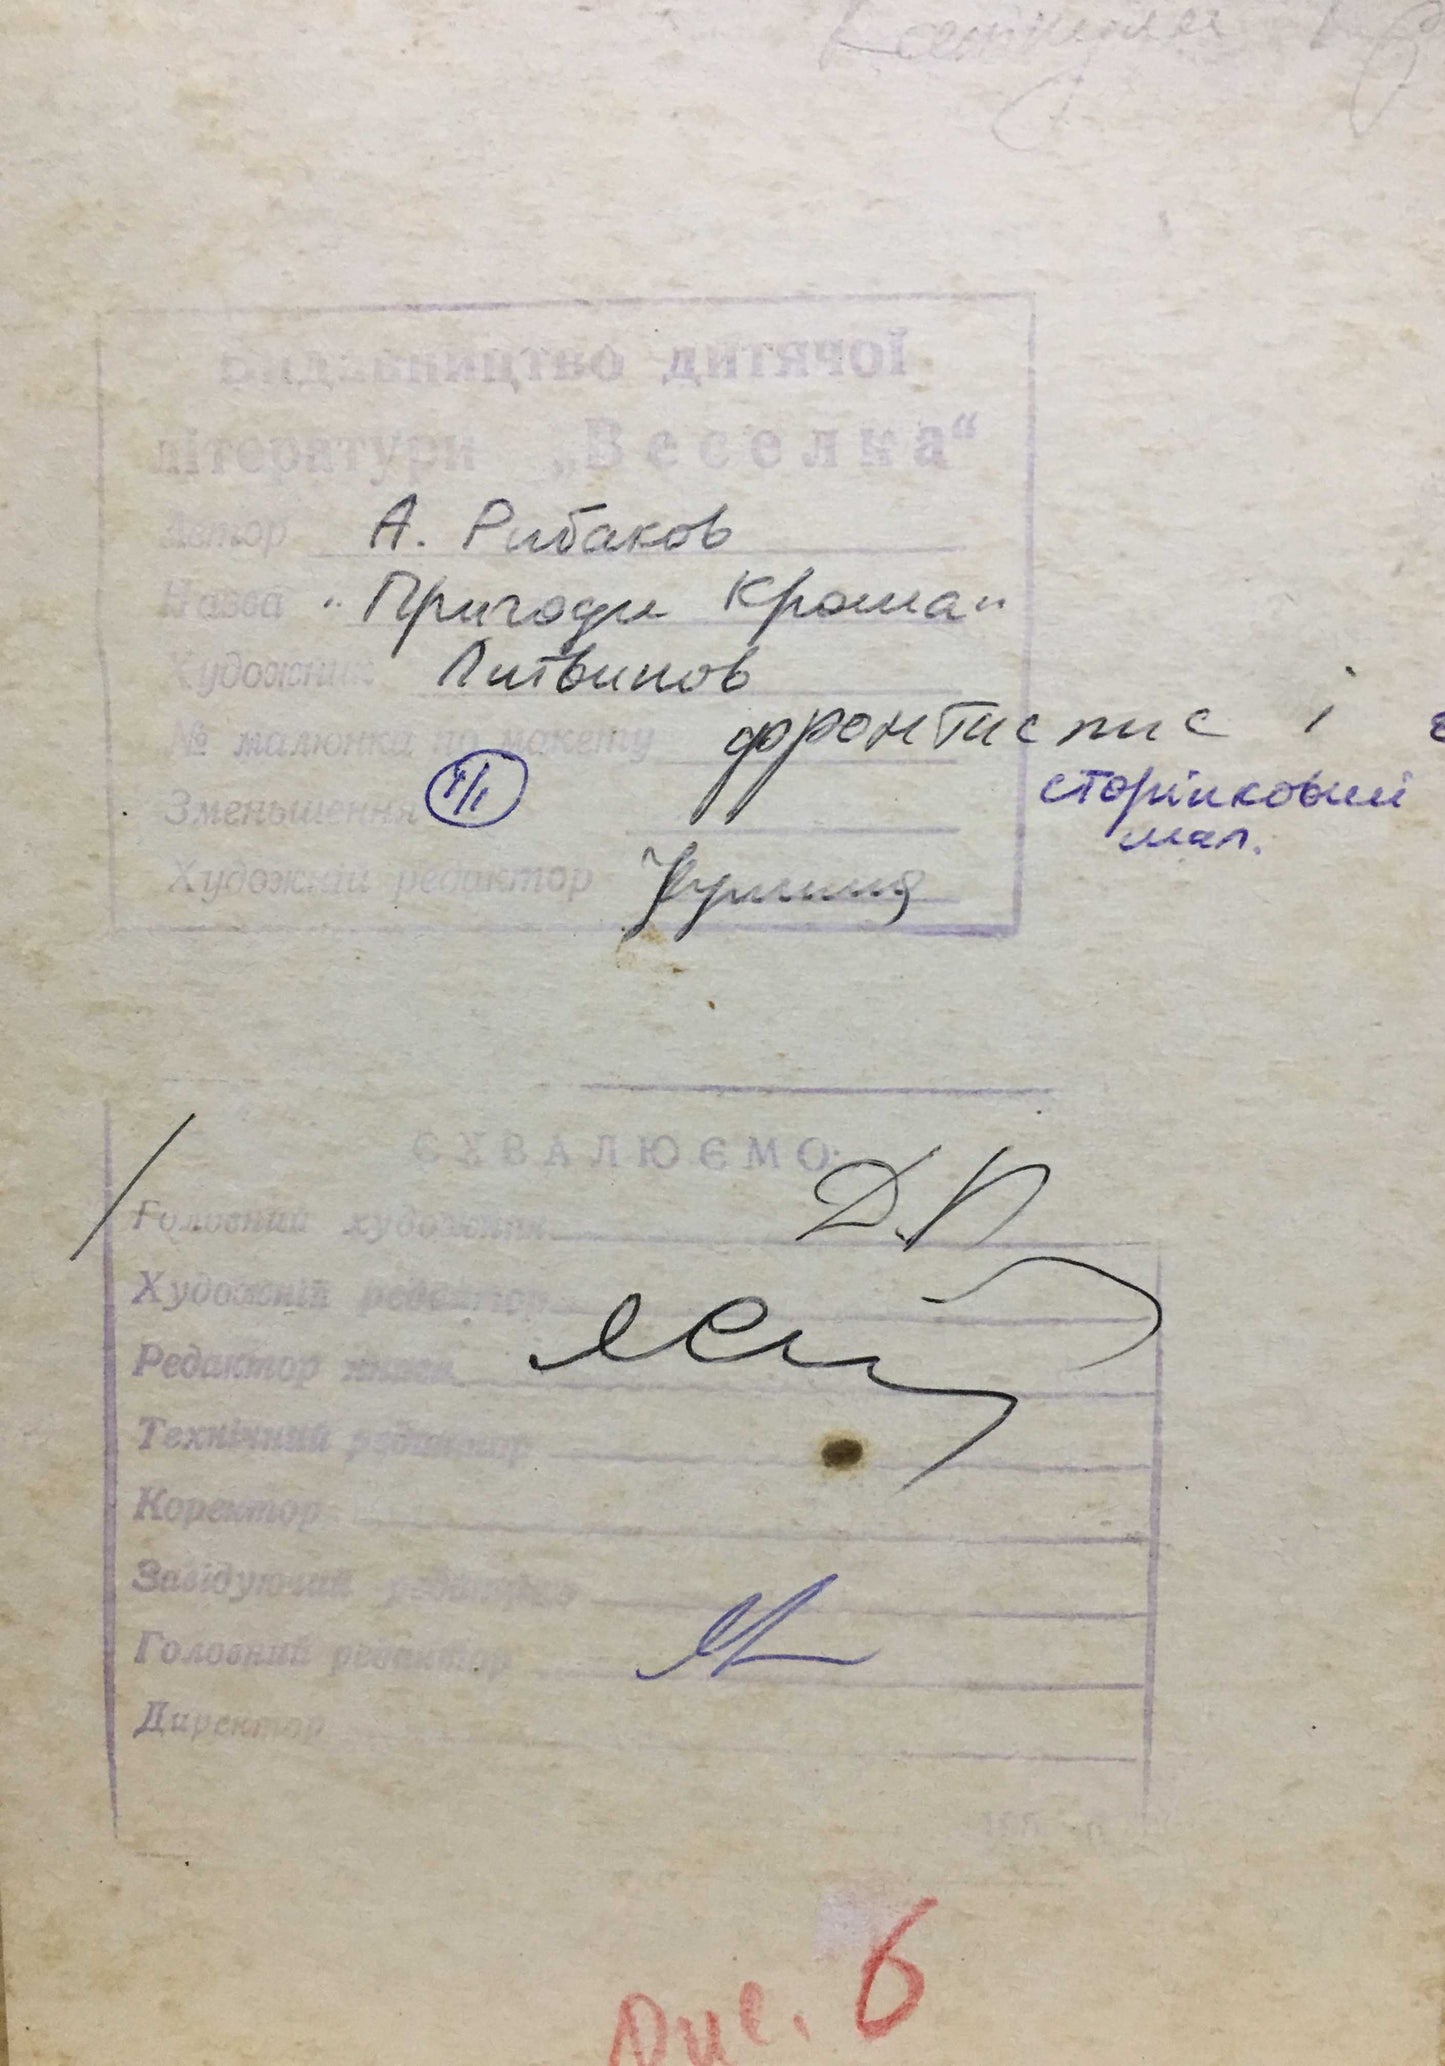 Видавництво дитячої
літератури „Веселка“
Автор А. Рибаков
Назва "Пригоди Кроша"
Художник Литвинов
№ малюнка по макету фронтиспис і
сторінковий
мал.
Зменьшення 1/1
Художній редактор
СХВАЛЮЄМО:
Головний художник
Художній редактор
Редактор книги
Технічний редактор
Коректор
Завідуючий редакцією
Головний редактор
Директор
Рис. 6